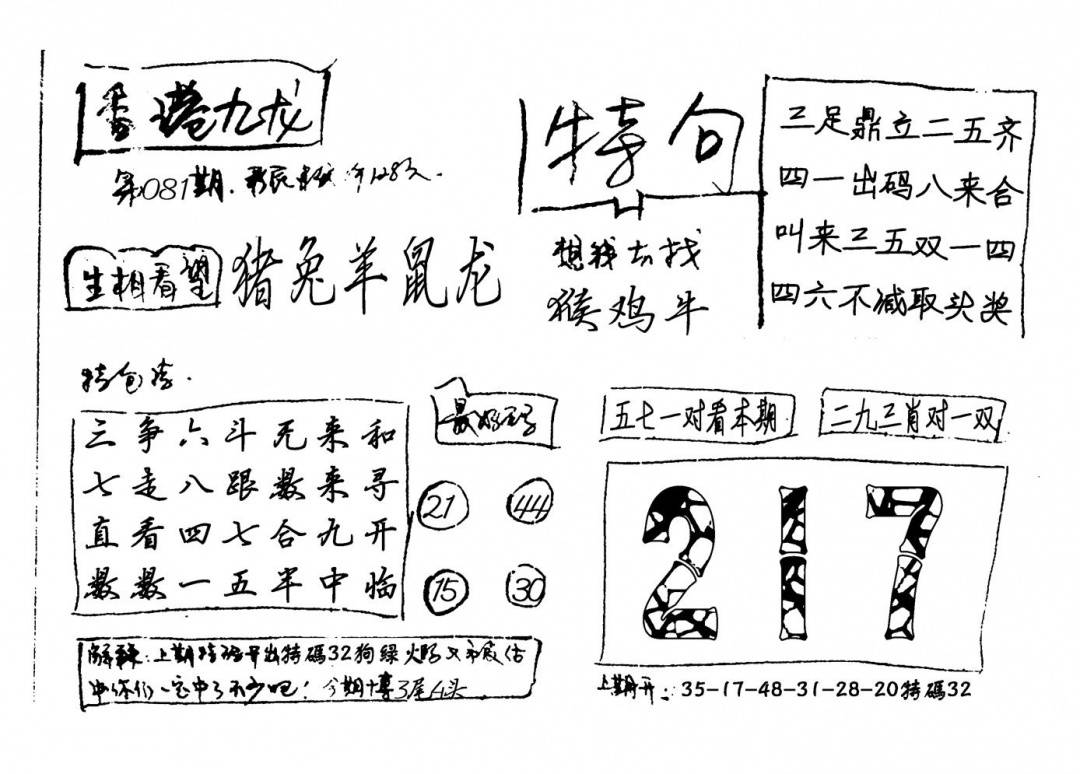 香港九龙
第081期.
特句
三足鼎立二五齐
四一出码八来合
叫来三五双一四
四六不减取头奖
想我去找
猴鸡牛
生相看望
猪兔羊鼠龙
特包
三争六斗无来和
七走八跟数来寻
直看四七合九开
数数一五半中临
21
44
15
30
五七一对看本期
二九三肖对一双
217
上期 开出特碼32狗綠
中你们一定中了不少吧! 今期
上期开: 35-17-48-31-28-20特碼32